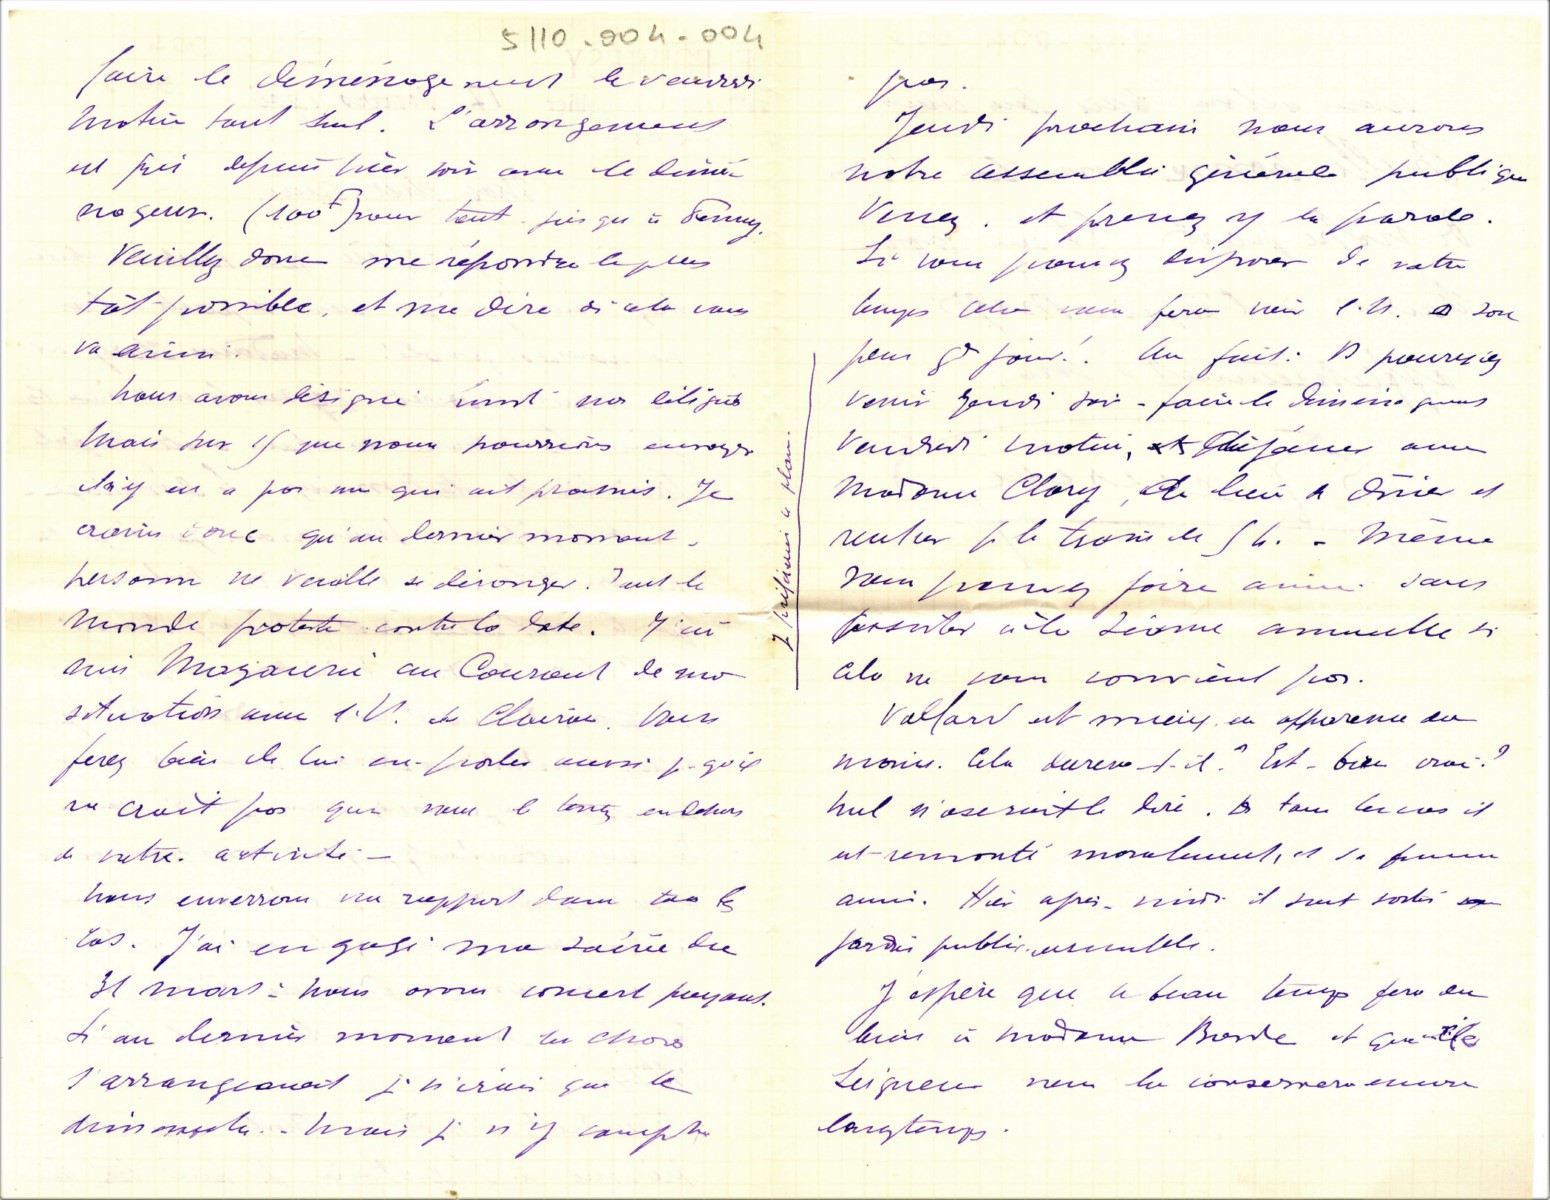 5110.004.004
faire le déménagement le vendredi
matin tout seul. L'arrangement
est pris depuis hier soir avec le démé-
nageur. (100F) pour tout jusqu'à
Veuillez donc me répondre le plus
tôt possible, et me dire si cela vous
va ainsi.
Nous avons désigné nos délégués
Mais sur 15 que nous pourrions envoyer
il n'y en a pas un qui ait promis. Je
crains donc qu'au dernier moment
personne ne veuille se déranger. Tout le
monde proteste contre la date. J'ai
mis au Courant de ma
situation avec l'U. de Clairac. Vous
ferez bien de lui en parler aussi
ne croit pas que vous le tenez en dehors
de votre activité —
Nous enverrons un rapport dans tous les
cas. J'ai engagé ma soirée du
31 mars : nous avons concert payant.
Si au dernier moment les choses
s'arrangeaient je n'irais que le
dimanche. - Mais je n'y compte
pas.
Jeudi prochain nous aurons
notre assemblée générale publique
Venez, et prenez y la parole.
Si vous pouvez disposer de votre
temps cela vous fera voir l'U. à son
plus gd jour !. Au fait : Vs pourriez
venir Jeudi soir - faire le déménagement
Vendredi matin, et déjeuner avec
Madame Clary, au lieu de dîner et
rentrer p. le train de 5 h. - Même
vous pouvez faire ainsi sans
assister à la séance annuelle si
cela ne vous convient pas.
Je préférerais ce plan.
Vallard est mieux en apparence du
moins. Cela durera-t-il ? Est-bien vrai ?
Nul n'oserait le dire. Ds tous les cas il
est remonté moralement, et sa femme
aussi. Hier après-midi il sont sortis au
jardin public ensemble.
J'espère que ce beau temps fera du
bien à Madame Borde et que le
Seigneur vous la conservera encore
longtemps.